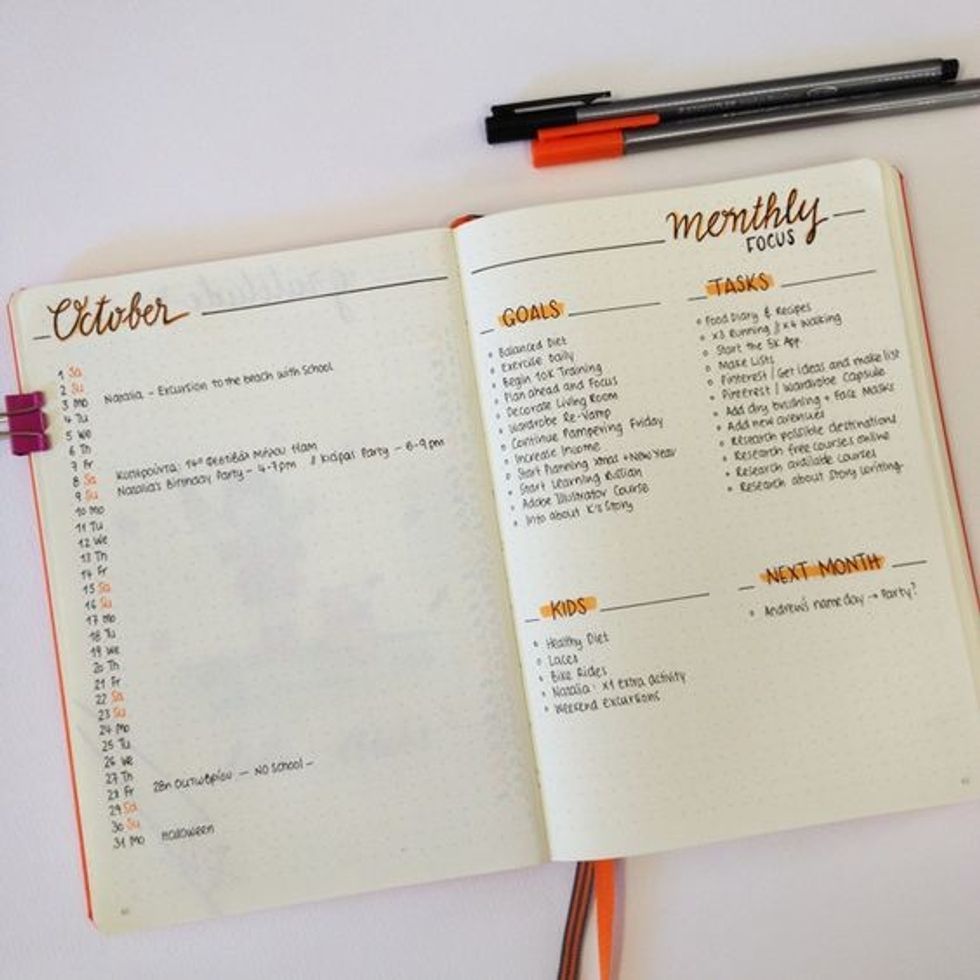 October
1 Sa
2 Su
3 Mo Natalia - Excursion to the beach with School
4 Tu
5 We
6 Th
7 Fr
8 Sa Κοπερούντα: 14º Φεστιβάλ Μήλου 11am
9 Su Natalia's Birthday Party - 4-7pm // Κιάρας Party - 6-9pm
10 Mo
11 Tu
12 We
13 Th
14 Fr
15 Sa
16 Su
17 Mo
18 Tu
19 We
20 Th
21 Fr
22 Sa
23 Su
24 Mo
25 Tu
26 We
27 Th
28 Fr 28η Οκτωβρίου — NO School -
29 Sa
30 Su
31 Mo Halloween
monthly
FOCUS
GOALS
Balanced Diet
Exercise Daily
Begin 10K Training
Plan ahead and Focus
Decorate Living Room
Wardrobe Re-Vamp
Continue Pampering Friday
Increase Income
Start Planning Xmas + New Year
Start Learning Russian
Adobe Illustrator Course
Into about K's Story
TASKS
Food Diary & Recipes
x3 Running // x4 Walking
Start the 5K App
Make Lists
Pinterest / Get ideas and make list
Pinterest / Wardrobe Capsule
Add dry brushing + Face Masks
Add new avenues
Research possible destinations
Research free courses online
Research available courses
Research about Story writing.
KIDS
Healthy Diet
Laces
Bike Rides
Natalia: x1 extra activity
Weekend Excursions
NEXT MONTH
Andrew's name day → Party?